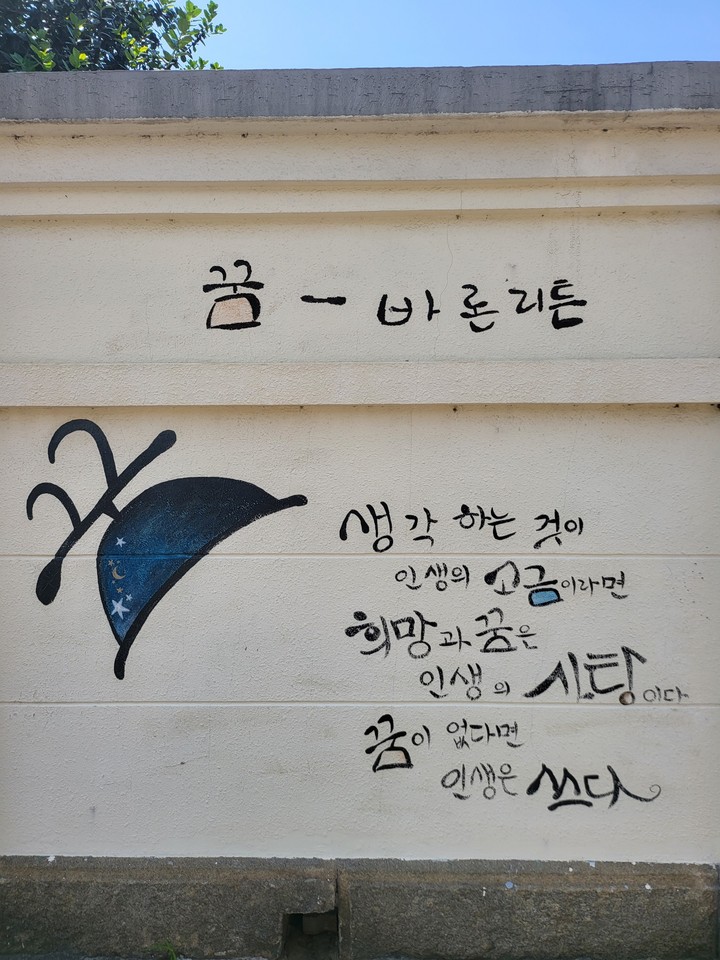 꿈 - 바론리튼
꿈
생각 하는 것이
인생의 소금이라면
희망과 꿈은
인생의 사탕이다
꿈이 없다면
인생은 쓰다